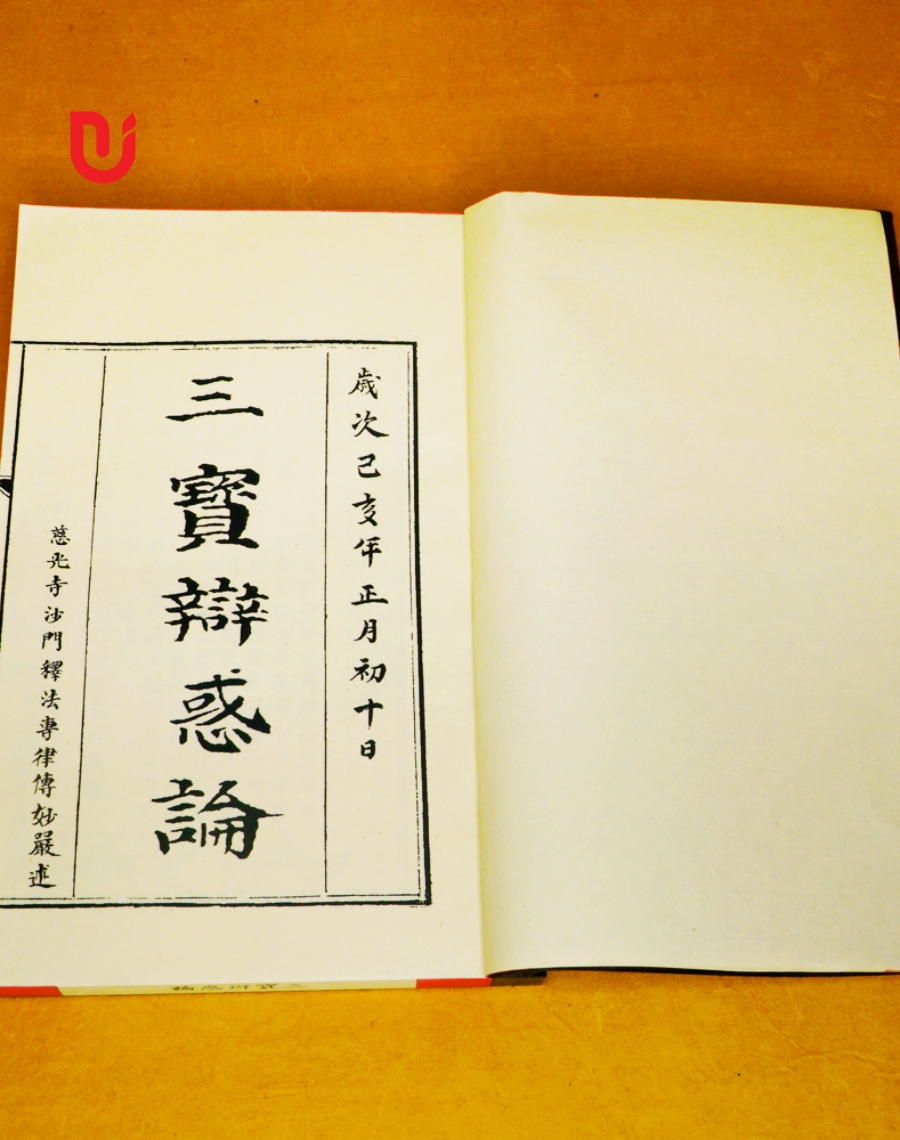 歲次己亥年正月初十日
三寶辯惑論
慈光寺沙門釋法專律傳妙嚴述